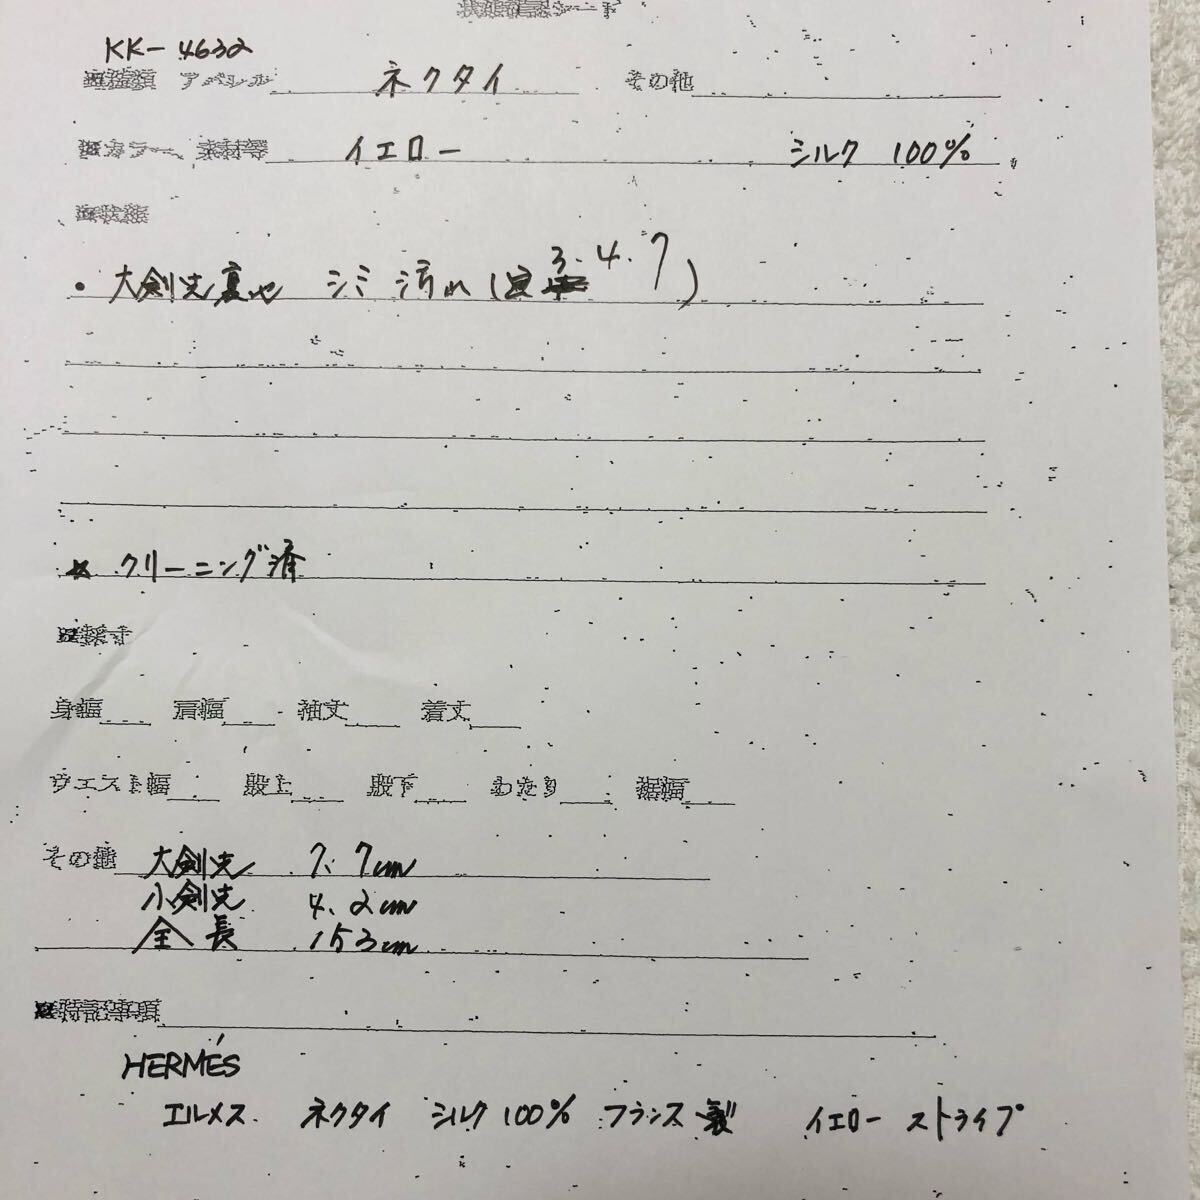 状態確認シート
KK-4632
種類 アパレル ネクタイ その他
カラー、素材等 イエロー シルク 100%
■状態
・大剣先裏地 シミ 汚れ( 3.4.7)
★ クリーニング済
■採寸
身幅 肩幅 袖丈 着丈
ウエスト幅 股上 股下 わたり 裾幅
その他 大剣先 7.7cm
小剣先 4.2cm
全長 153cm
■特記事項
HERMÉS
エルメス ネクタイ シルク 100% フランス製 イエロー ストライプ